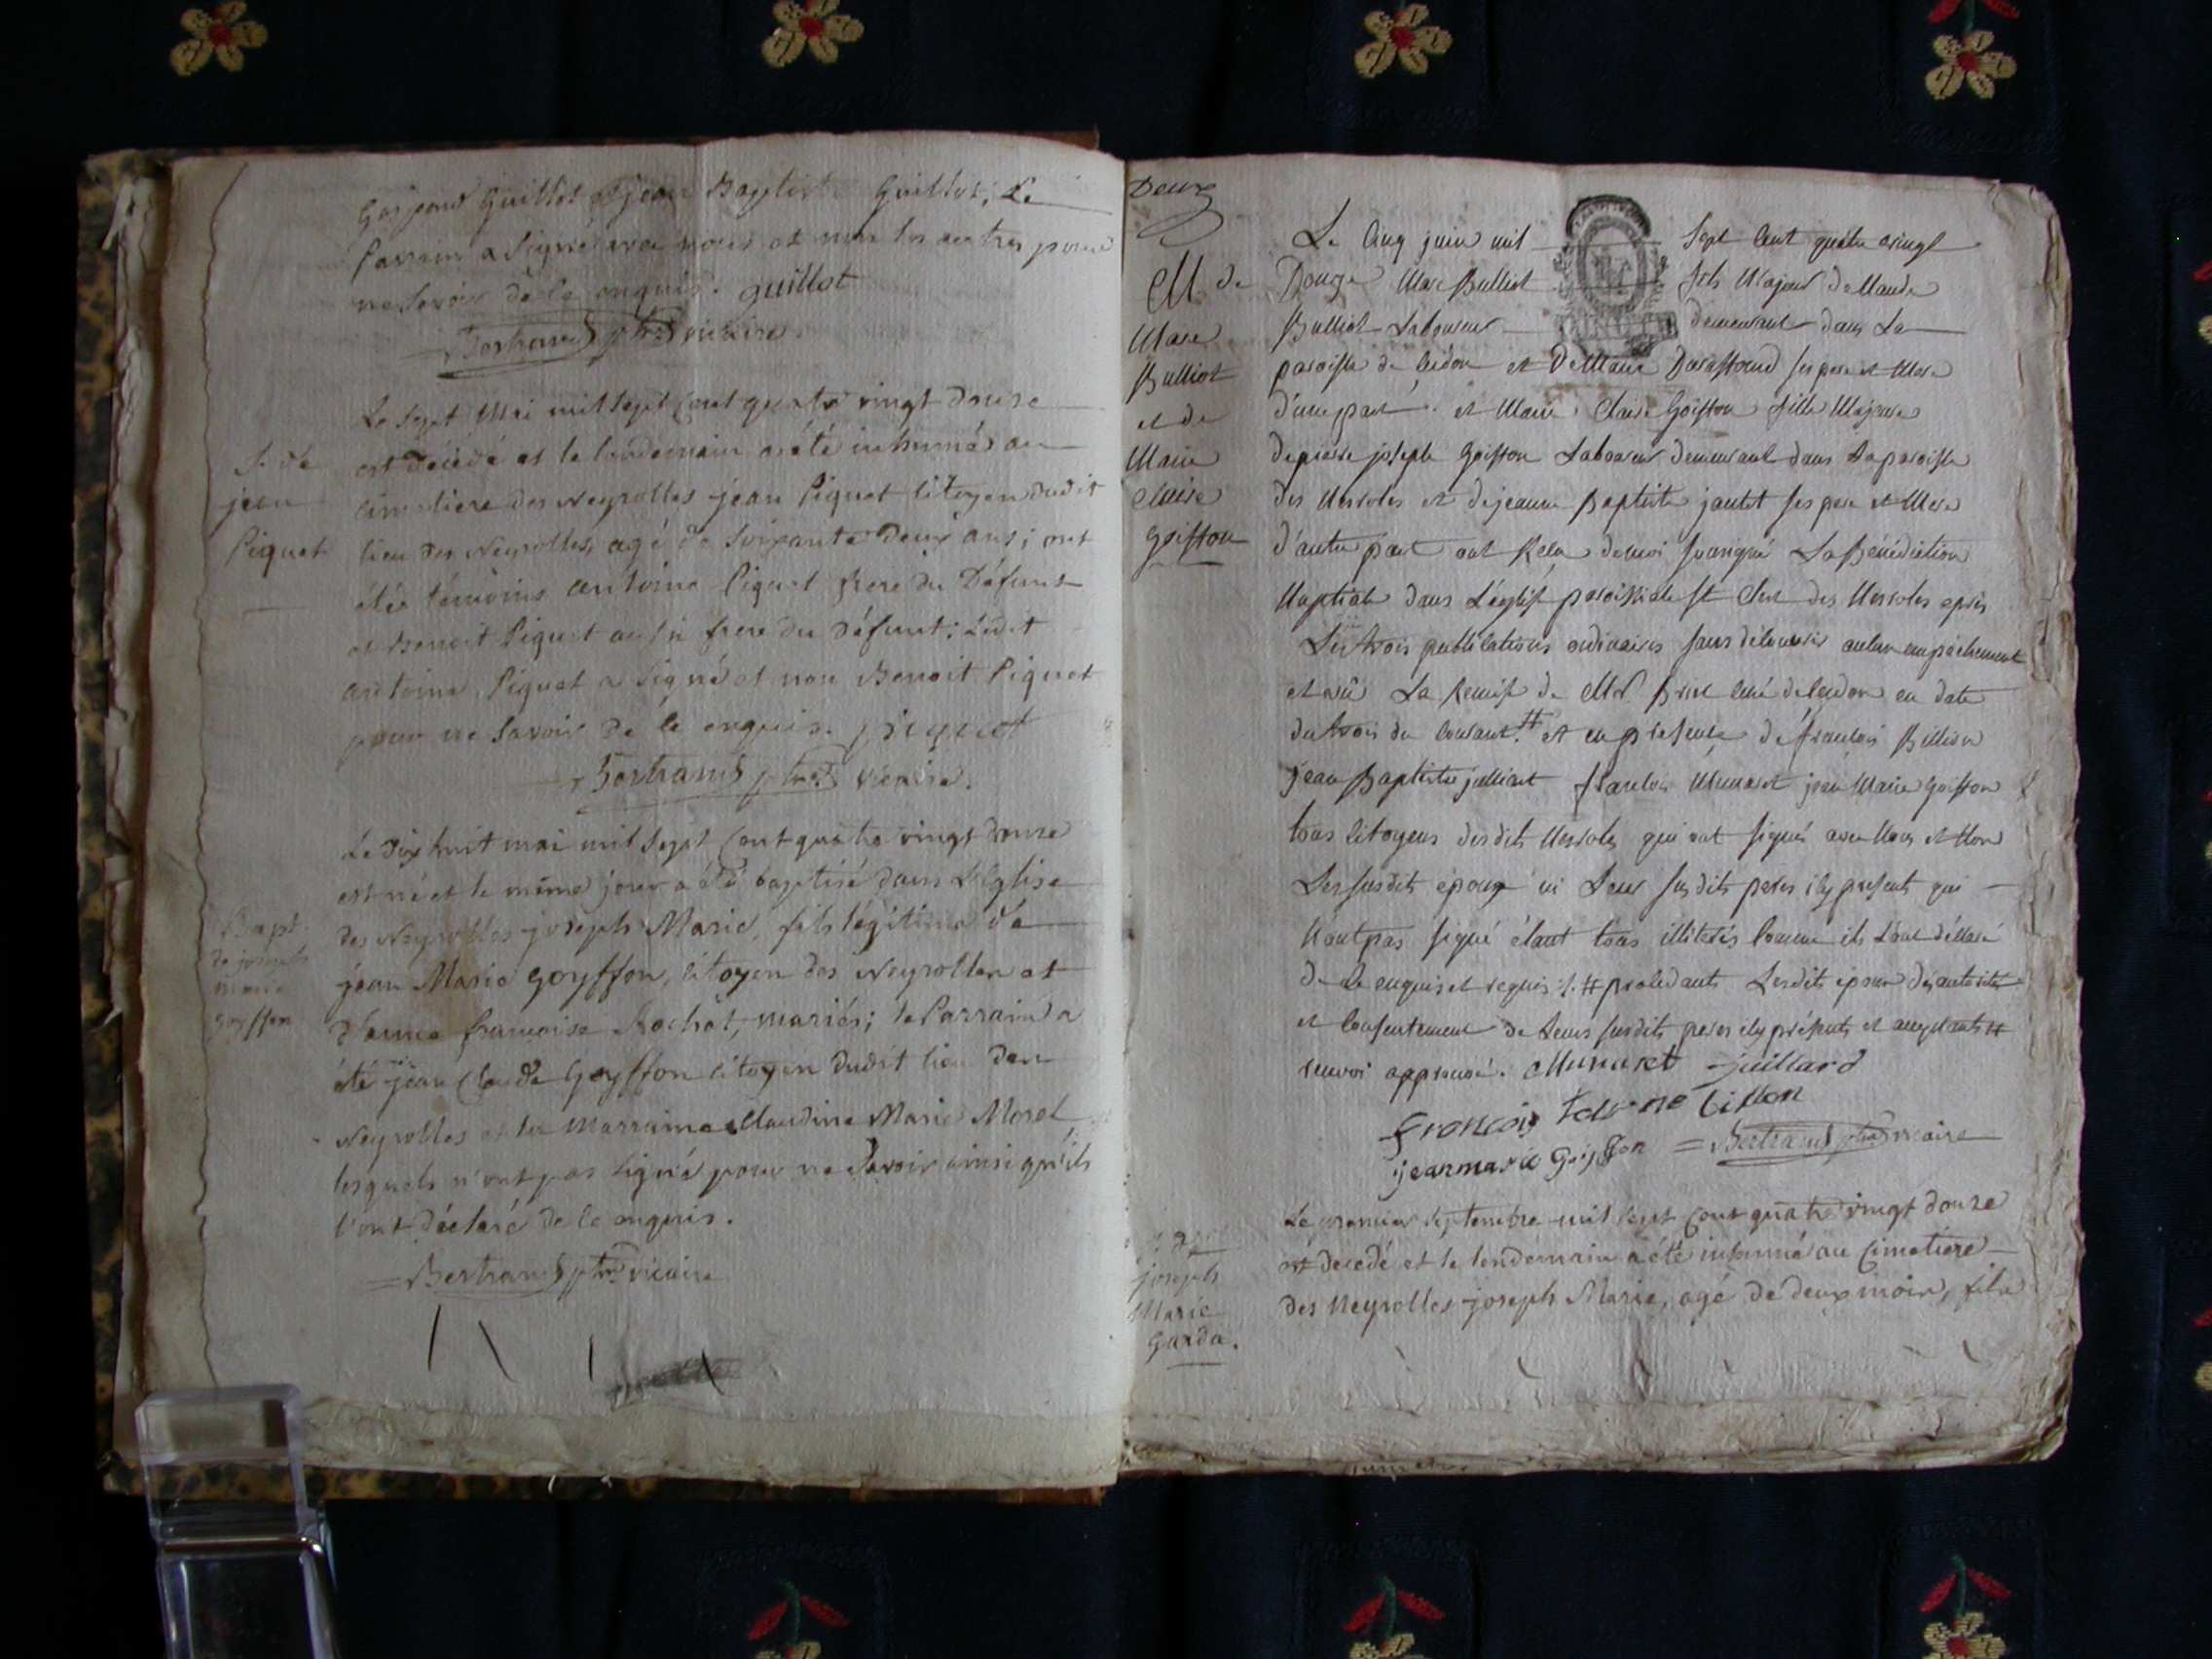 Gaspard Guillot et jean Baptiste Guillot; Le
Parrain a signé avec nous et non les autres pour
ne savoir de ce enquis. guillot
Bertrand ptre vicaire.
S. de
jean
Piquet
Le sept Mai mil sept cent quatre vingt douze
est décédé et le lendemain a été inhumé au
cimetiere des Neyrolles jean Piquet citoyen dudit
lieu des Neyrolles, agé de soixante deux ans; ont
étée témoins antoine Piquet frere du Défunt
et Benoit Piquet aussi frere du défunt; Ledit
antoine Piquet a signé et non Benoit Piquet
pour ne savoir de ce enquis. piquet
Bertrand ptre vicaire.
Bapt.
de joseph
marie
goyffon
Le dix huit mai mil sept cent quatre vingt douze
est né et le même jour a été baptisé dans L'Eglise
des Neyrolles joseph Marie, fils légitime de
jean Marie goyffon, citoyen des Neyrolles et
d'anne francoise Rochet, mariés; le Parrain a
été jean Claude Goyffon citoyen dudit lieu des
Neyrolles et la Marraine Claudine Marie Morel,
lesquels n'ont pas signé pour ne Savoir ainsi qu'ils
l'ont déclaré de ce enquis.
Bertrand ptre vicaire
Deux
M de
Marc
Bulliot
et de
Marie
Claire
goiffon
Le Cinq juin mil sept Cent quatre vingt
Douze Marc Bulliot fils Majeur de Claude
Bulliot Laboureur demeurant dans La
paroisse de et De Marie ses pere et Mere
d'une part. et Marie Claire Goiffon fille Majeure
de pierre joseph goiffon Laboureur demeurant dans La paroisse
des Nerroles et de jeanne Baptiste jantet ses pere et Mere
d'autre part ont Reçu de moi soussigné La Bénédiction
Nuptiale dans L'église paroissiale St des Nerroles après
Les trois publications ordinaires sans découvrir aucun empêchement
et vû La Remise de Mr. Curé de en date
du trois du Courant.# et en presence de françois Billion
jean Baptiste julliard francois Munaret jean Marie goiffon
tous citoyens desdits Nerroles qui ont signés avec Nous et Non
Les susdits époux ni Leurs susdits peres icy presents qui
N'ont pas signé étant tous illiterés Comme ils L'ont déclaré
de ce enquis et requis ./. # procedants Lesdits époux des autorités
et Consentement de Leurs susdits peres icy présents et acceptants #
renvoi approuvé. Munaret Juillard
François billion
jean marie Goiffon = Bertrand ptre vicaire
joseph
Marie
Garda.
Le premier septembre mil sept cent quatre vingt douze
est decedé et le lendemain a été inhumé au Cimetiere
des Neyrolles joseph Marie, agé de deux mois, fils